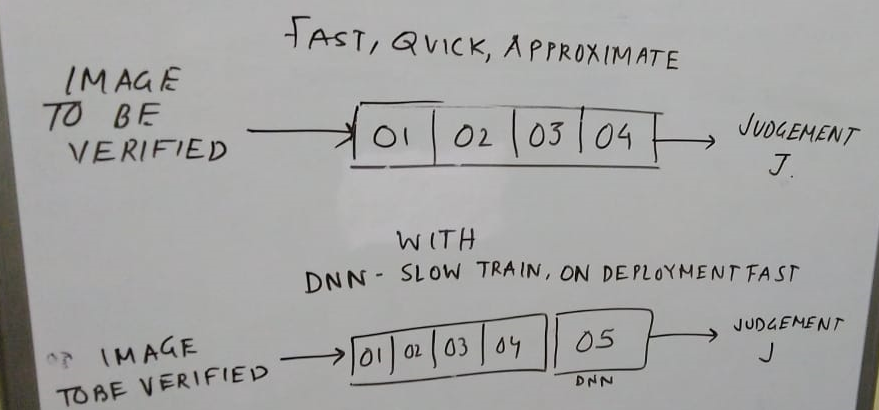 FAST, QUICK, APPROXIMATE
IMAGE
TO BE
VERIFIED
01 02 03 04
JUDGEMENT
J.
WITH
DNN - SLOW TRAIN, ON DEPLOYMENT FAST
IMAGE
TO BE VERIFIED
01 02 03 04 05
DNN
JUDGEMENT
J